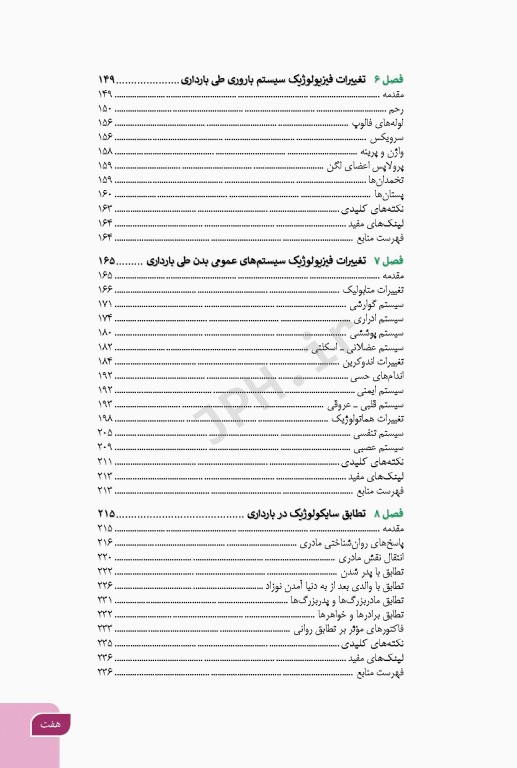 فصل ۶ تغییرات فیزیولوژیک سیستم باروری طی بارداری ..................... ۱۴۹
مقدمه ..................... ۱۴۹
رحم ..................... ۱۵۰
لوله‌های فالوپ ..................... ۱۵۶
سرویکس ..................... ۱۵۶
واژن و پرینه ..................... ۱۵۸
پرولاپس اعضای لگن ..................... ۱۵۹
تخمدان‌ها ..................... ۱۵۹
پستان‌ها ..................... ۱۶۰
نکته‌های کلیدی ..................... ۱۶۳
لینک‌های مفید ..................... ۱۶۴
فهرست منابع ..................... ۱۶۴
فصل ۷ تغییرات فیزیولوژیک سیستم‌های عمومی بدن طی بارداری ......... ۱۶۵
مقدمه ..................... ۱۶۵
تغییرات متابولیک ..................... ۱۶۶
سیستم گوارشی ..................... ۱۷۱
سیستم ادراری ..................... ۱۷۴
سیستم پوششی ..................... ۱۸۰
سیستم عضلانی ـ اسکلتی ..................... ۱۸۲
تغییرات اندوکرین ..................... ۱۸۴
اندام‌های حسی ..................... ۱۹۲
سیستم ایمنی ..................... ۱۹۲
سیستم قلبی ـ عروقی ..................... ۱۹۳
تغییرات هماتولوژیک ..................... ۱۹۸
سیستم تنفسی ..................... ۲۰۵
سیستم عصبی ..................... ۲۰۹
نکته‌های کلیدی ..................... ۲۱۱
لینک‌های مفید ..................... ۲۱۳
فهرست منابع ..................... ۲۱۳
فصل ۸ تطابق سایکولوژیک در بارداری ..................... ۲۱۵
مقدمه ..................... ۲۱۵
پاسخ‌های روان‌شناختی مادری ..................... ۲۱۶
انتقال نقش مادری ..................... ۲۲۰
تطابق با پدر شدن ..................... ۲۲۲
تطابق با والدی بعد از به دنیا آمدن نوزاد ..................... ۲۲۶
تطابق مادربزرگ‌ها و پدربزرگ‌ها ..................... ۲۳۱
تطابق برادرها و خواهرها ..................... ۲۳۲
فاکتورهای مؤثر بر تطابق روانی ..................... ۲۳۳
نکته‌های کلیدی ..................... ۲۳۵
لینک‌های مفید ..................... ۲۳۶
فهرست منابع ..................... ۲۳۶
JPH.ir
هفت